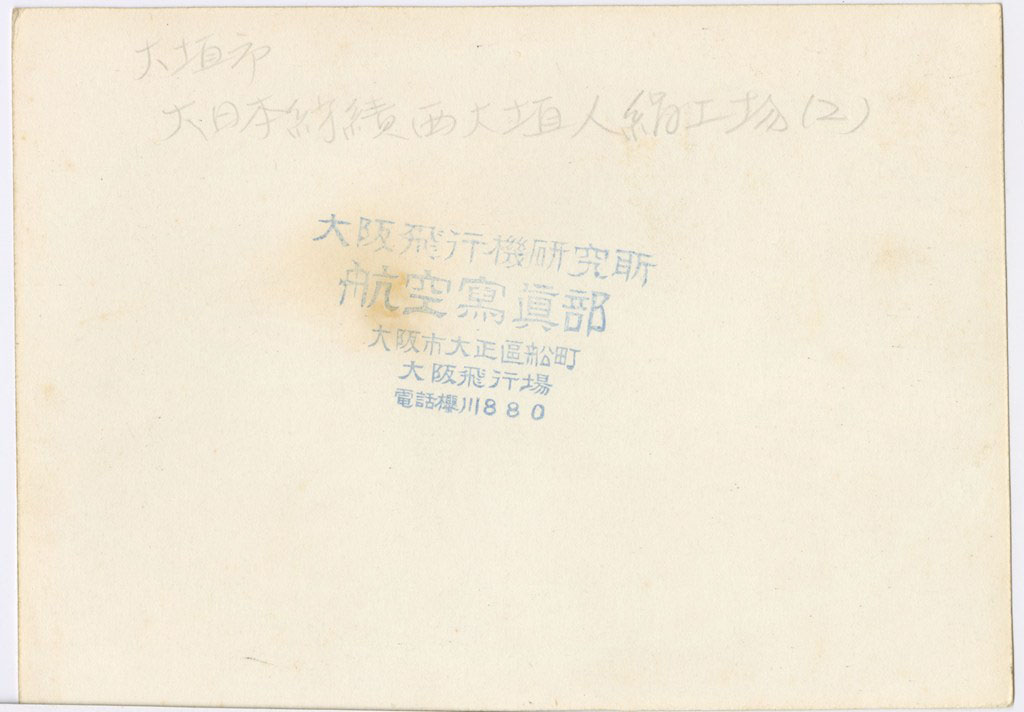 大垣市
大日本紡績西大垣人絹工場(2)
大阪飛行機研究所
航空寫眞部
大阪市大正區船町
大阪飛行場
電話櫻川880